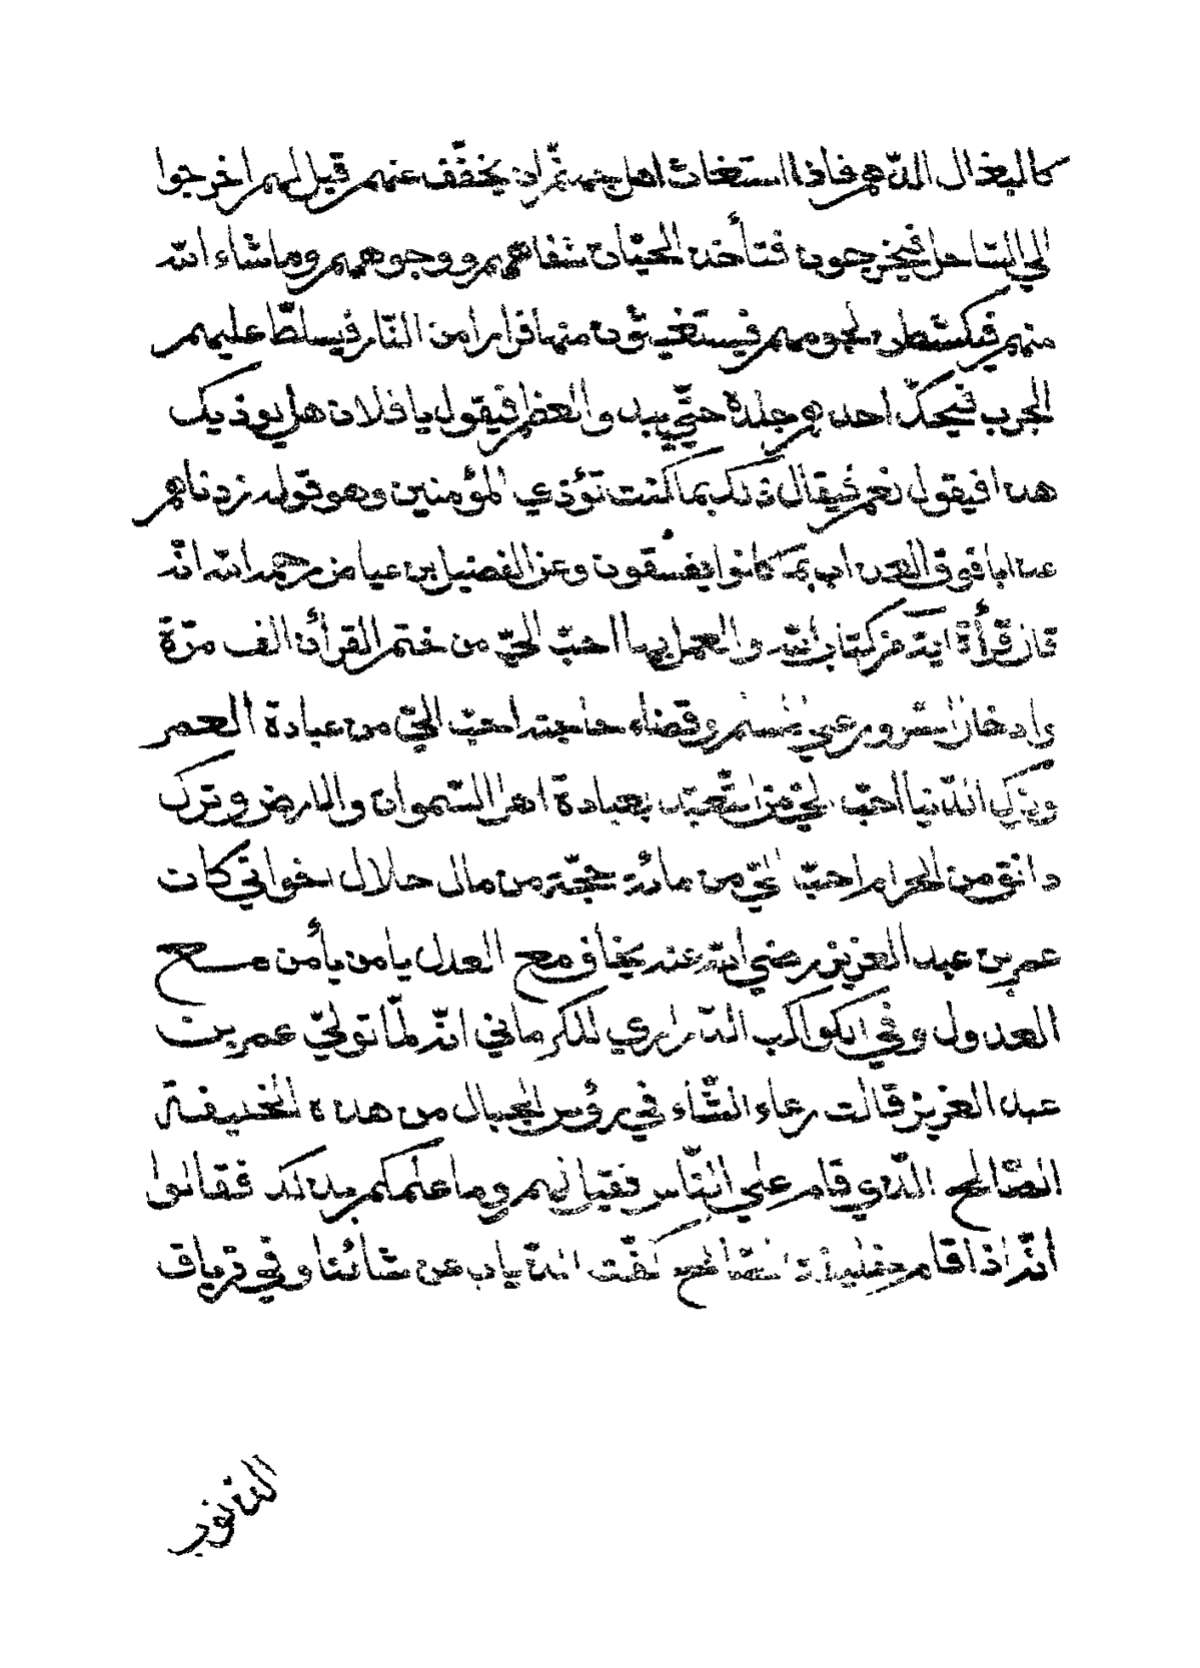 كالبغال الدّهم فاذا استغاث اهل جهنّم ان يخفّف عنهم قيل لهم اخرجوا
الي السّاحل فيخرجون فتأخذ الحيّات شفاههم ووجوههم وما شاء الله
منهم فيكشطن لحومهم فيستغيثون منها فرارا من النّار فيسلّط عليهم
الجرب فيحكّ احدهم جلدة حتّي يبدو العظم فيقول يا فلان هل يوذيك
هذا فيقول نعم فيقال ذلك بما كنت تؤذي المؤمنين وهو قوله زدناهم
عذابا فوق العذاب بما كانوا يفسقون وعن الفضيل بن عياض رحمه الله انّه
قال قرأة اية من كتاب الله والعمل بها احبّ اليّ من ختم القرأن الف مرّة
وادخال السّرور علي المسلم وقضاء حاجته احبّ اليّ من عبادة العمر
وترك الدّنيا احبّ اليّ من التّعبّد بعبادة اهل السّموات والارض وترك
دانق من الحرام احبّ اليّ من مائة حجّة من مال حلال اخواني كان
عمر بن عبد العزيز رضي الله عنه يخاف مع العدل يا من يأمن مع
العدول وفي الكواكب الدّراري للكرماني انّه لمّا تولّي عمر بن
عبد العزيز قالت رعاء الشّاء في رؤس الجبال من هذه الخليفة
الصّالح الّذي قام علي النّاس فقيل لهم وما علمكم بذلك فقالوا
انّه اذا قام خليفة الصّالح كفّت الذّياب عن شائنا وفي ترياق
الذنوب